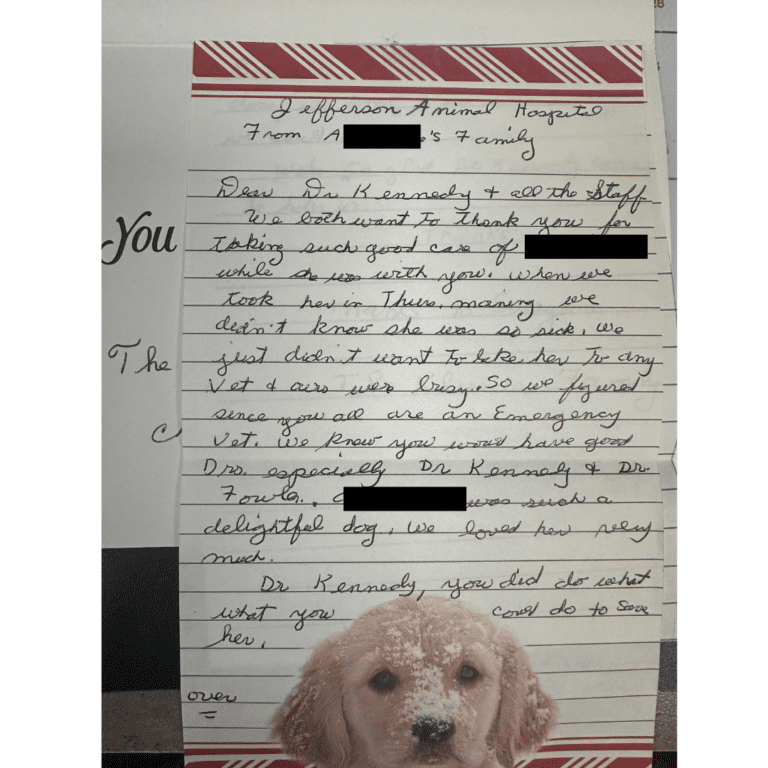 Jefferson Animal Hospital
From A 's Family
Dear Dr Kennedy + all the Staff
We both want to thank you for
taking such good care of
while she was with you. When we
took her in Thurs. morning we
didn't know she was so sick. We
just didn't want to take her to any
Vet & ours were busy. So we figured
since you all are an Emergency
Vet. We knew you would have good
Drs. especially Dr Kennedy & Dr.
Fowler. was such a
delightful dog. We loved her very
much.
Dr Kennedy, you did do what
what you could do to save
her.
over
You
The
8